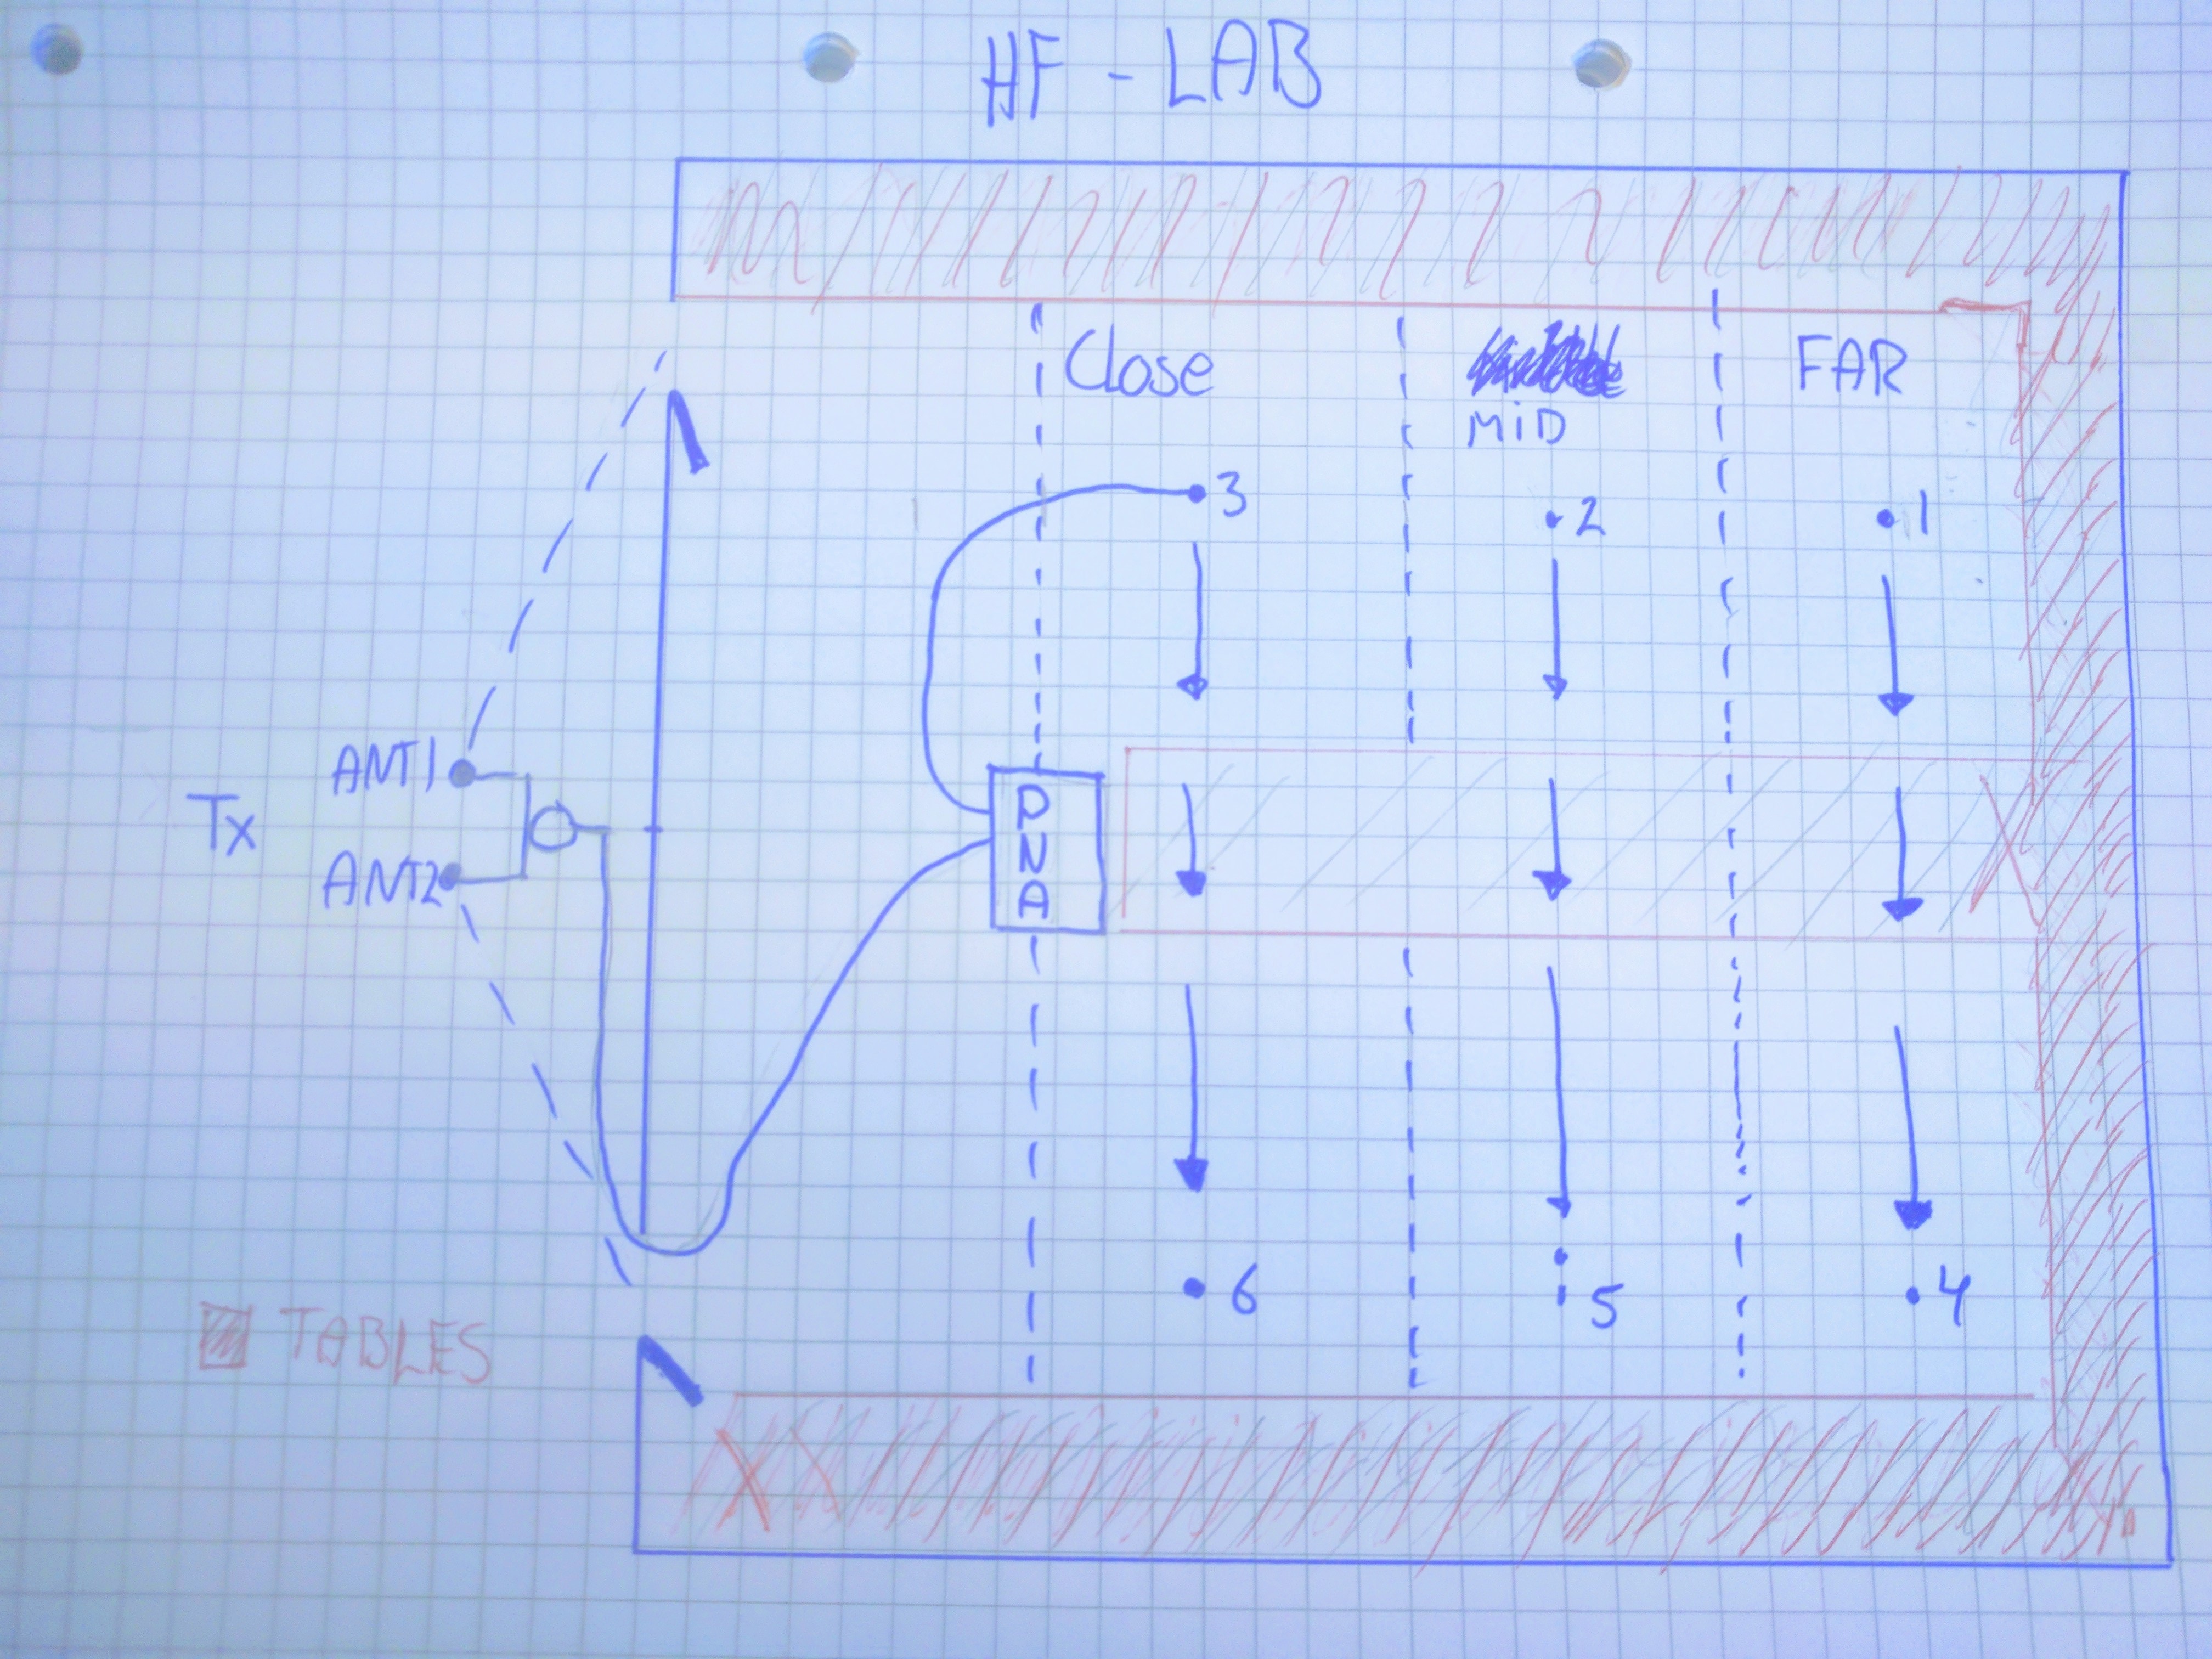 HF - LAB
Close
MiD
FAR
3
2
1
ANT1
Tx
ANT2
PNA
6
5
4
TABLES